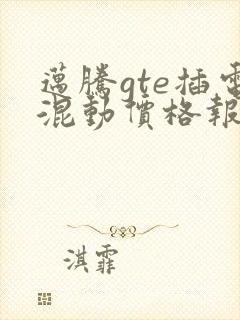 邁騰gte插電
混動價格報
淇霏